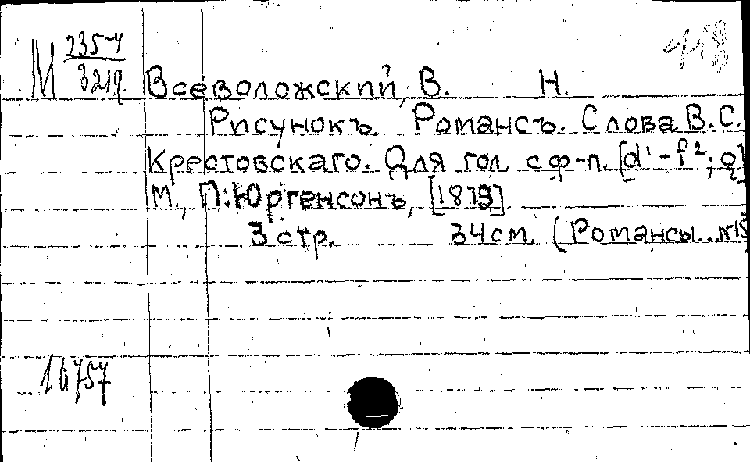 М 2354
3219
Всеволожский, В. Н.
Рисунокъ. Романсъ. Слова В.С.
Крестовскаго. Для гол. с ф-п. [d¹-f²; g]
М., П. Юргенсонъ, [1879].
3 стр. 34 см. (Романсы. №
16757